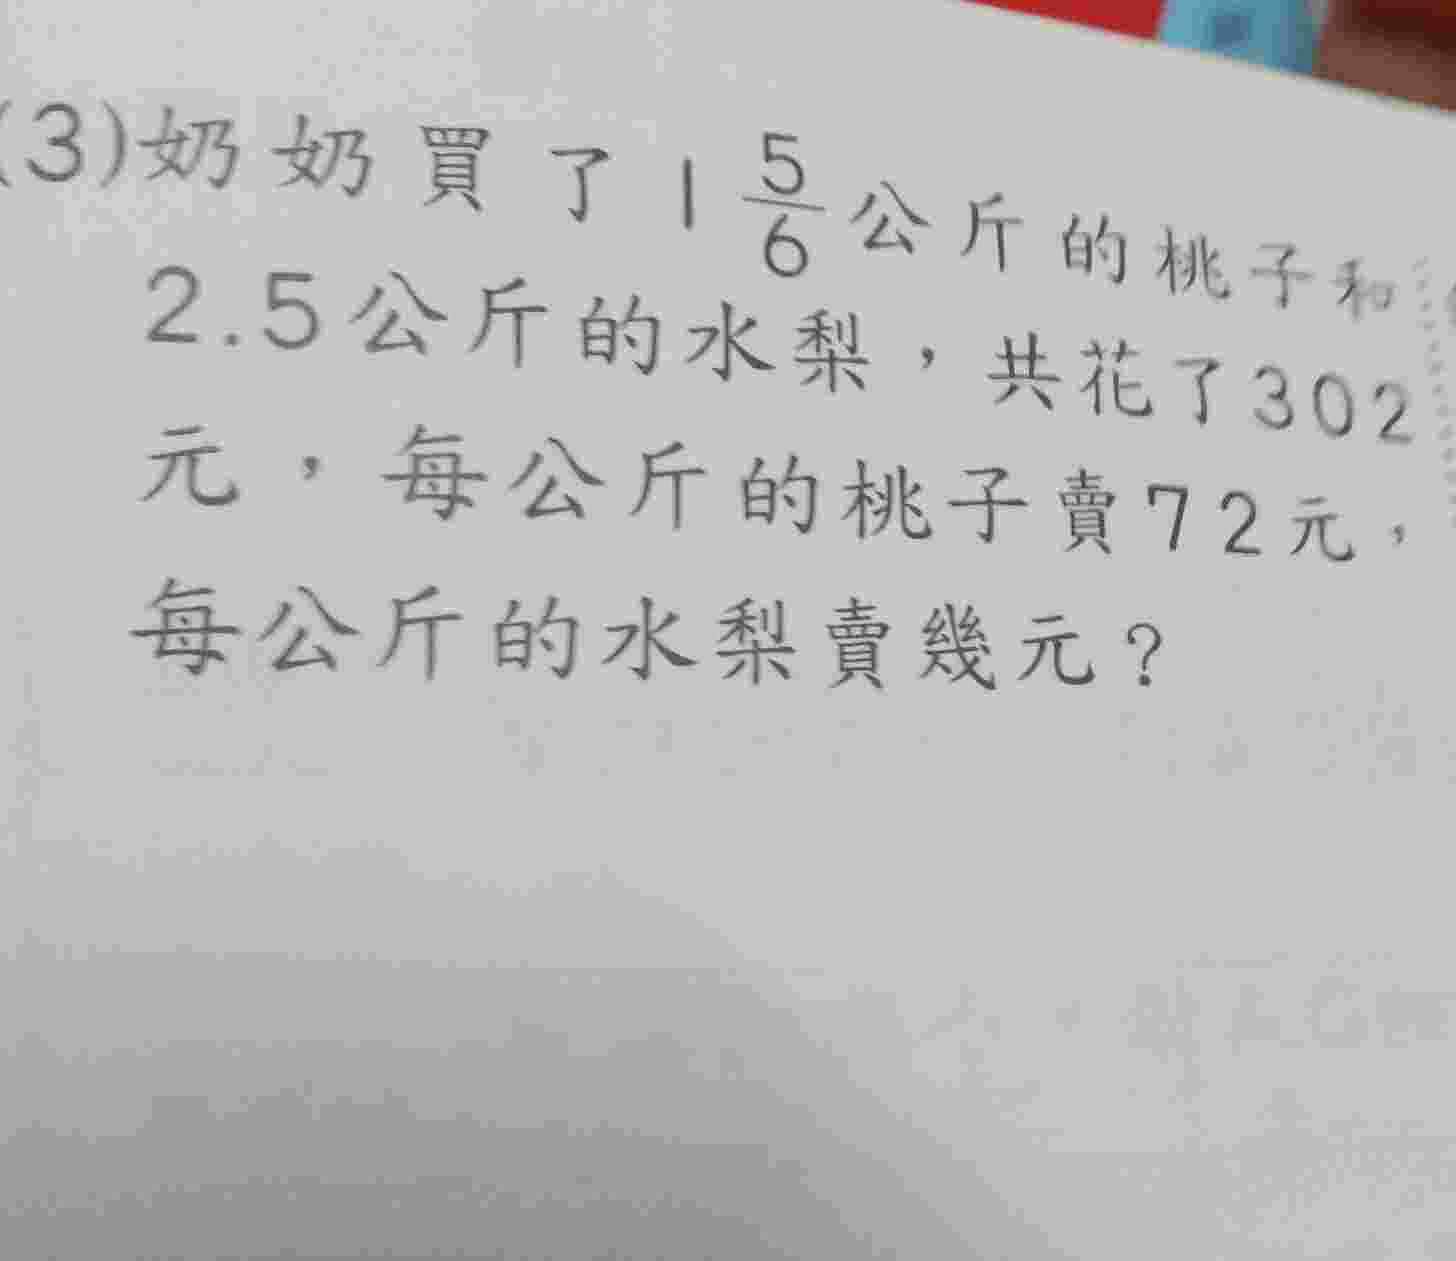 (3)奶奶買了1 5/6公斤的桃子和
2.5公斤的水梨，共花了302
元，每公斤的桃子賣72元，
每公斤的水梨賣幾元？